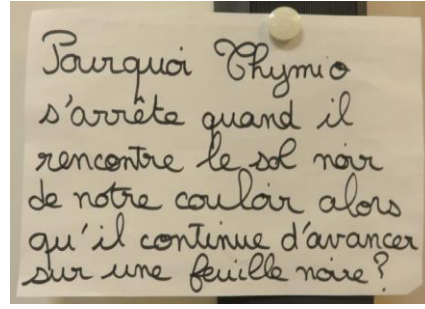 Pourquoi Thymio
s'arrête quand il
rencontre le sol noir
de notre couloir alors
qu'il continue d'avancer
sur une feuille noire?